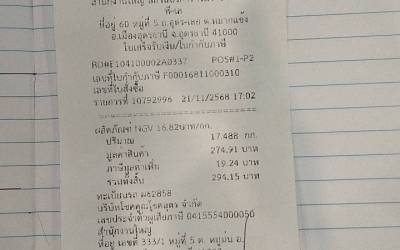 สำนักงานใหญ่
ที่อยู่ 60 หมู่ที่ 5 ถ.อุดร-เลย ต.หมากแข้ง
อ.เมืองอุดรธานี จ.อุดรธานี 41000
ใบเสร็จรับเงิน/ใบกำกับภาษี
RD#E104100002A0337 POS#1-P2
เลขที่ใบกำกับภาษี F00016811000310
เลขที่ใบสั่งซื้อ
รายการที่ 10792996 21/11/2568 17:02
ผลิตภัณฑ์ NGV 16.82บาท/กก.
ปริมาณ 17.488 กก.
มูลค่าสินค้า 274.91 บาท
ภาษีมูลค่าเพิ่ม 19.24 บาท
รวมทั้งสิ้น 294.15 บาท
ทะเบียนรถ ผ62858
บริษัทโชคคูณโชคอุดร จำกัด
เลขประจำตัวผู้เสียภาษี 0415554000050
สำนักงานใหญ่
ที่อยู่ เลขที่ 333/1 หมู่ที่ 5 ต. อ.